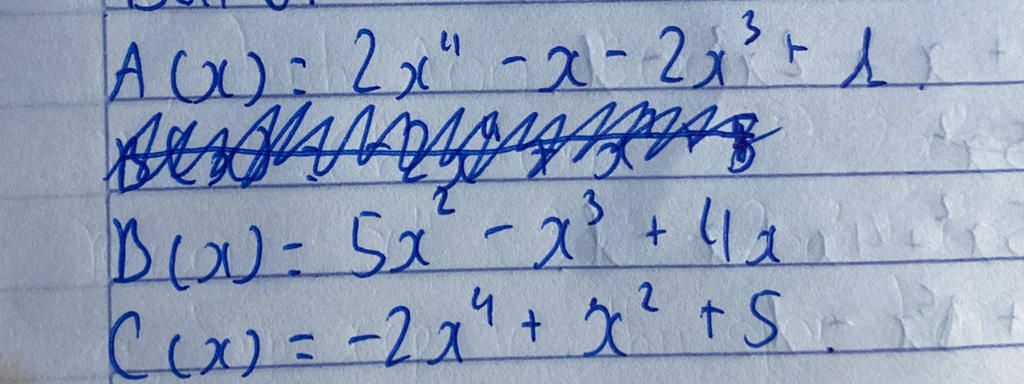 A(x) = 2x⁴ - x - 2x³ + 1
B(x) = 5x² - x³ + 4x
C(x) = -2x⁴ + x² + 5